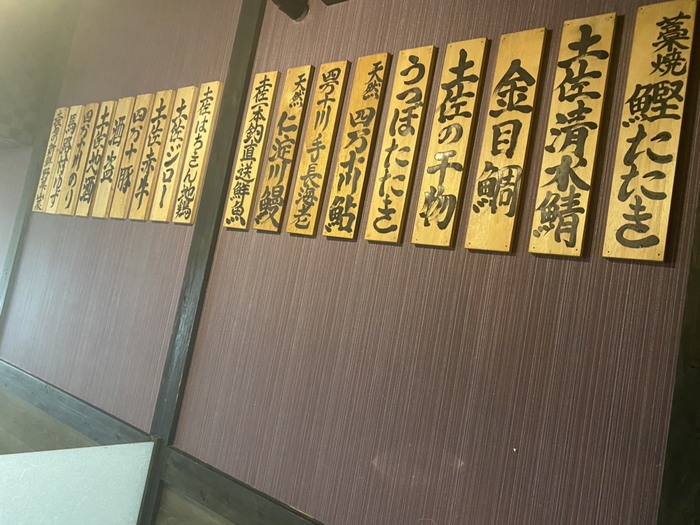 藁焼鰹たたき
土佐清水鯖
金目鯛
土佐の干物
うつぼたたき
天然四万十川鮎
四万十川手長海老
天然仁淀川鰻
土佐一本釣直送鮮魚
土佐はちきん地鶏
土佐ジロー
土佐赤牛
四万十豚
酒盗
土佐地酒
四万十川のり
馬路村柚子